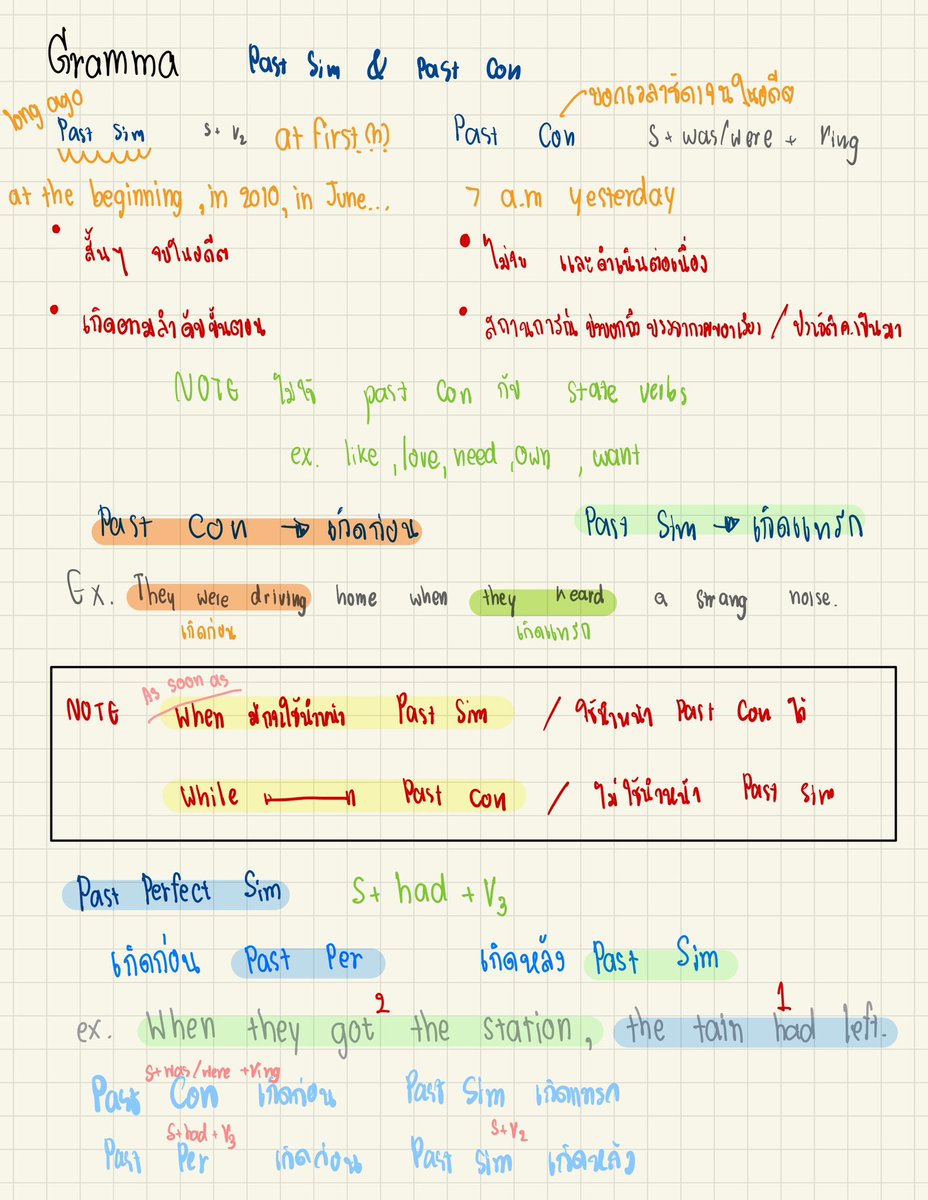 Gramma Past Sim & Past Con
long ago
บอกเวลาชัดเจนในอดีต
Past Sim S+ V2 at first (n) Past Con S+ was/were + Ving
at the beginning, in 2010, in June... 7 a.m yesterday
• สั้นๆ จบในอดีต • ไม่จบ และดำเนินต่อเนื่อง
• เกิดตามลำดับขั้นตอน • สถานการณ์ บรรยากาศของเรื่อง /
NOTE ไม่ใช้ past con กับ state verbs
ex. like, love, need, own, want
Past Con → เกิดก่อน Past Sim → เกิดแทรก
Ex. They were driving home when they heard a strang noise.
เกิดก่อน เกิดแทรก
As soon as
NOTE When มักใช้นำหน้า Past Sim / ใช้นำหน้า Past Con ได้
While Past Con / ไม่ใช้นำหน้า Past Sim
Past Perfect Sim S+ had + V3
เกิดก่อน Past Per เกิดหลัง Past Sim
2 1
ex. When they got the station, the tain had left.
S+was/were +Ving
Past Con เกิดก่อน Past Sim เกิดแทรก
S+had+V3 S+V2
Past Per เกิดก่อน Past Sim เกิดหลัง